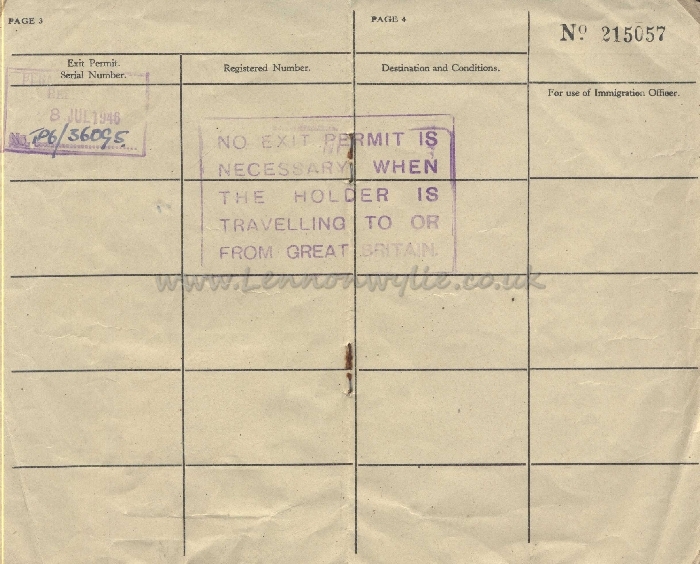 PAGE 3
PAGE 4
Nº 215057
Exit Permit.
Serial Number.
Registered Number.
Destination and Conditions.
For use of Immigration Officer.
8 JUL 1946
No.
NO EXIT PERMIT IS
NECESSARY WHEN
THE HOLDER IS
TRAVELLING TO OR
FROM GREAT BRITAIN.
www.Lennonwylie.co.uk